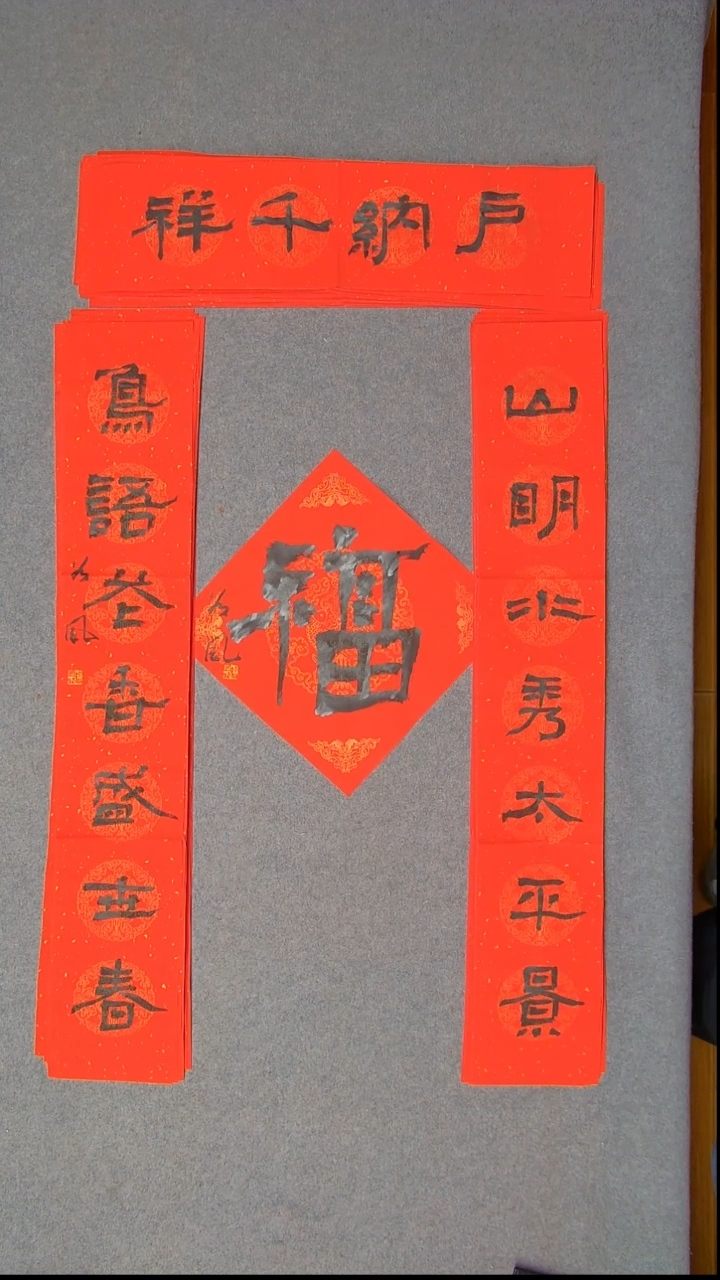 户納千祥
山明水秀太平景
鳥語花香盛世春
福